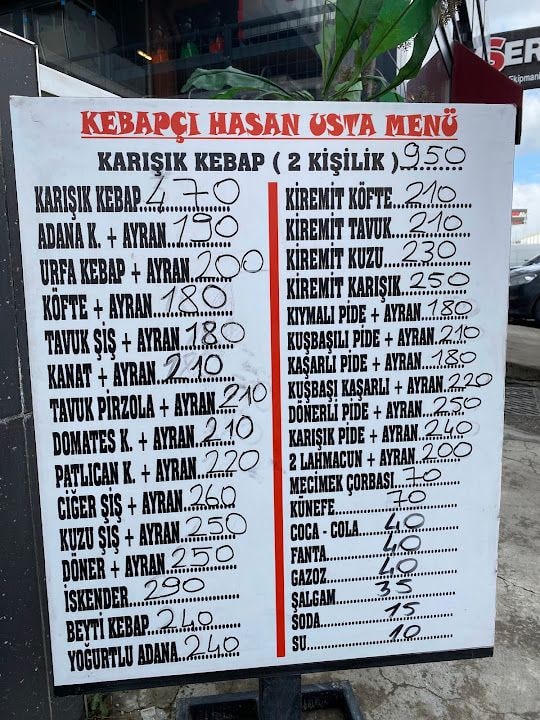 SER
Ekipmanl
KEBAPÇI HASAN USTA MENÜ
KARIŞIK KEBAP ( 2 KİŞİLİK )...950
KARIŞIK KEBAP...470
ADANA K. + AYRAN...190
URFA KEBAP + AYRAN...200
KÖFTE + AYRAN...180
TAVUK ŞİŞ + AYRAN...180
KANAT + AYRAN...210
TAVUK PİRZOLA + AYRAN...210
DOMATES K. + AYRAN...210
PATLICAN K. + AYRAN...220
CİĞER ŞİŞ + AYRAN...260
KUZU ŞİŞ + AYRAN...250
DÖNER + AYRAN...250
İSKENDER...290
BEYTİ KEBAP...240
YOĞURTLU ADANA...240
KİREMİT KÖFTE...210
KİREMİT TAVUK...210
KİREMİT KUZU...230
KİREMİT KARIŞIK...250
KIYMALI PİDE + AYRAN...180
KUŞBAŞILI PİDE + AYRAN...210
KAŞARLI PİDE + AYRAN...180
KUŞBAŞI KAŞARLI + AYRAN...220
DÖNERLİ PİDE + AYRAN...250
KARIŞIK PİDE + AYRAN...240
2 LAHMACUN + AYRAN...200
MECİMEK ÇORBASI...70
KÜNEFE...70
COCA - COLA...40
FANTA...40
GAZOZ...40
ŞALGAM...35
SODA...15
SU...10